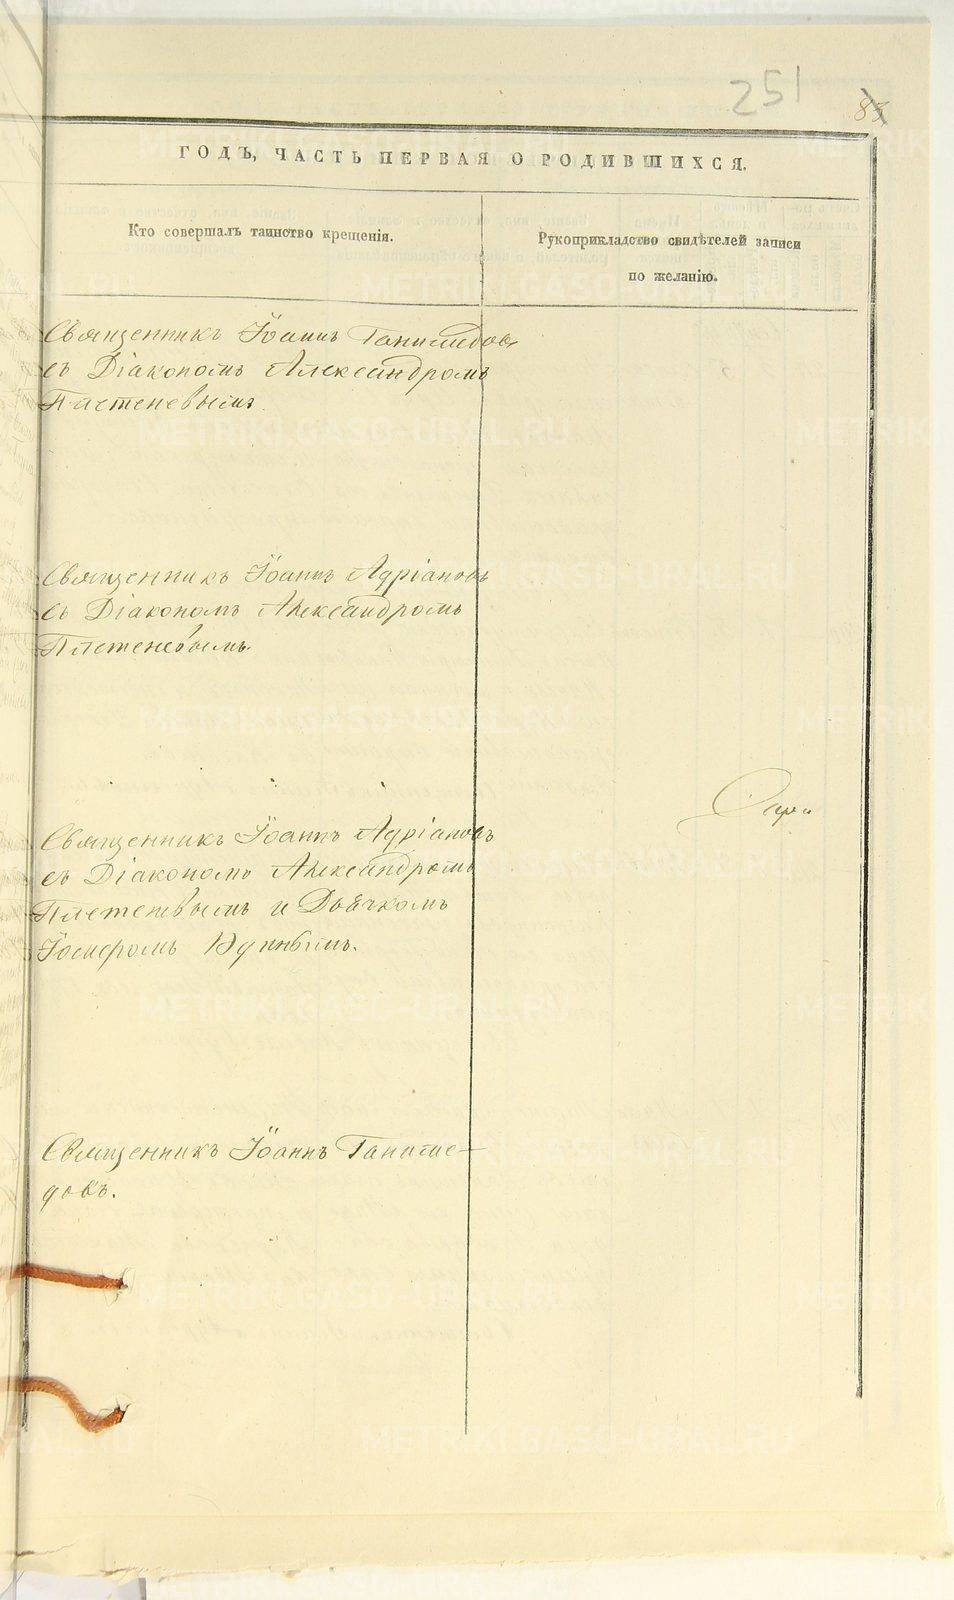 251
83
ГОДЪ, ЧАСТЬ ПЕРВАЯ О РОДИВШИХСЯ.
Кто совершалъ таинство крещенія.
Рукоприкладство свидѣтелей записи
по желанію.
Священникъ Іоаннъ Ганимедовъ
съ Діакономъ Александромъ
Плетеневымъ
Священникъ Іоаннъ Адріановъ
съ Діакономъ Александромъ
Плетеневымъ.
Священникъ Іоаннъ Адріановъ
съ Діакономъ Александромъ
Плетеневымъ и Дьячкомъ
Іосифомъ
Священникъ Іоаннъ Ганиме-
довъ.
METRIKI.GASO-URAL.RU